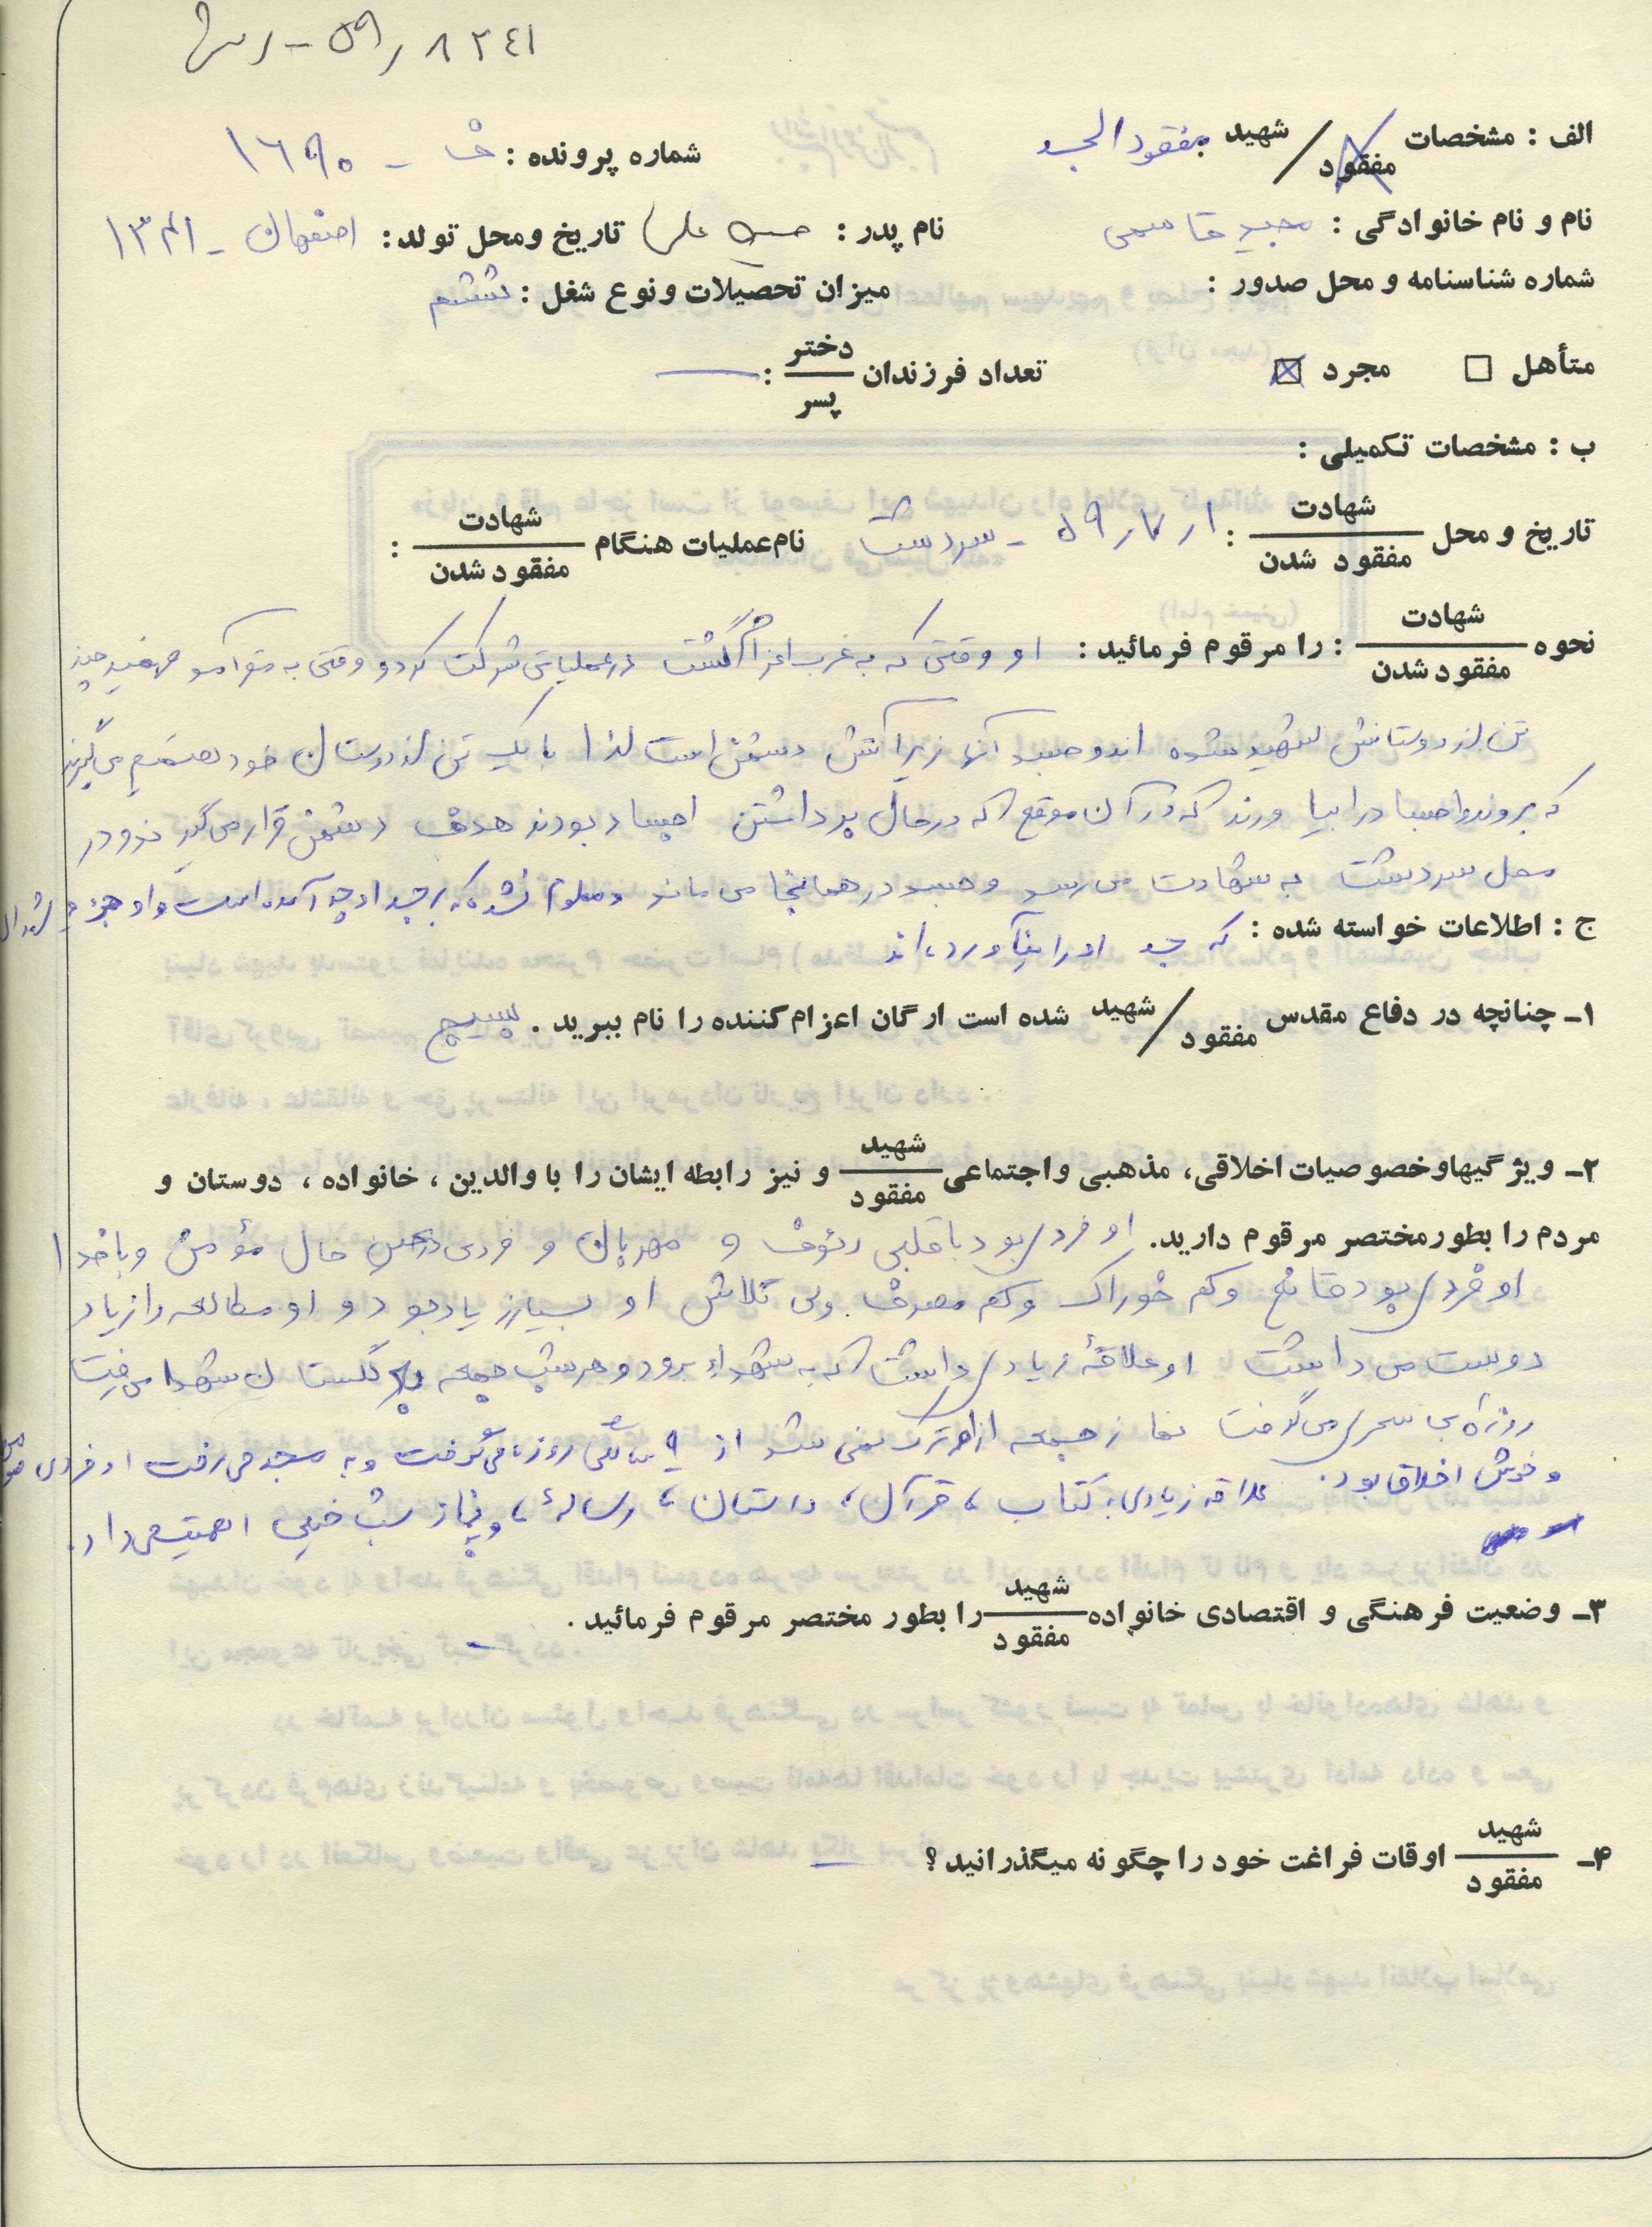 ۵۹٫۸۲۴۱
الف : مشخصات شهید / مفقود مفقودالجسد شماره پرونده : ف - ۱۶۹۰
نام و نام خانوادگی : مجید قاسمی نام پدر : حسینعلی تاریخ ومحل تولد : اصفهان - ۱۳۴۱
شماره شناسنامه و محل صدور : میزان تحصیلات ونوع شغل : ششم
متأهل ☐ مجرد ☒ تعداد فرزندان دختر / پسر : —
ب : مشخصات تکمیلی :
تاریخ و محل شهادت / مفقود شدن : ۵۹٫۷٫۱ - سردشت نام عملیات هنگام شهادت / مفقود شدن :
نحوه شهادت / مفقود شدن : را مرقوم فرمائید : او وقتی که به غرب اعزام گشت در عملیاتی شرکت کرد و وقتی به می‌فهمید چند
تن از دوستانش شهید شده اند و جسد آنها زیر آتش دشمن است لذا با یک تن از دوستان خود تصمیم می‌گیرند
که بروند و اجساد را بیاورند که در آن موقع که در حال برداشتن اجساد بودند هدف دشمن قرار می‌گیرند و در
محل سردشت به شهادت می‌رسد و جسد در همانجا می‌ماند و معلوم نشد که بر جسد او چه آمده است و او جزء
ج : اطلاعات خواسته شده : که جسد او را نیاورده‌اند
۱ـ چنانچه در دفاع مقدس شهید / مفقود شده است ارگان اعزام کننده را نام ببرید . بسیج
۲ـ ویژگیهاوخصوصیات اخلاقی، مذهبی واجتماعی شهید / مفقود و نیز رابطه ایشان را با والدین ، خانواده ، دوستان و
مردم را بطورمختصر مرقوم دارید. او فردی بود با قلبی رئوف و مهربان و فردی در عین حال مؤمن و باخدا
او فردی بود قانع و کم خوراک و کم مصرف ولی تلاش او بسیار زیاد بود و او مطالعه را زیاد
دوست می داشت او علاقهٔ زیادی داشت که به شهداء برود و هر شب جمعه به گلستان شهدا می‌رفت
روزه بی سحری می گرفت نماز جمعه از او ترک نمی شد از ۹ سالگی روزه می‌گرفت و به مسجد می رفت او فردی
و خوش اخلاق بود . علاقه زیادی به کتاب ، قرآن ، داستان ، رساله ، و نماز شب خیلی اهمیت می‌داد.
۳ـ وضعیت فرهنگی و اقتصادی خانواده شهید / مفقود را بطور مختصر مرقوم فرمائید . —
۴ـ شهید / مفقود اوقات فراغت خود را چگونه میگذرانید ؟ —